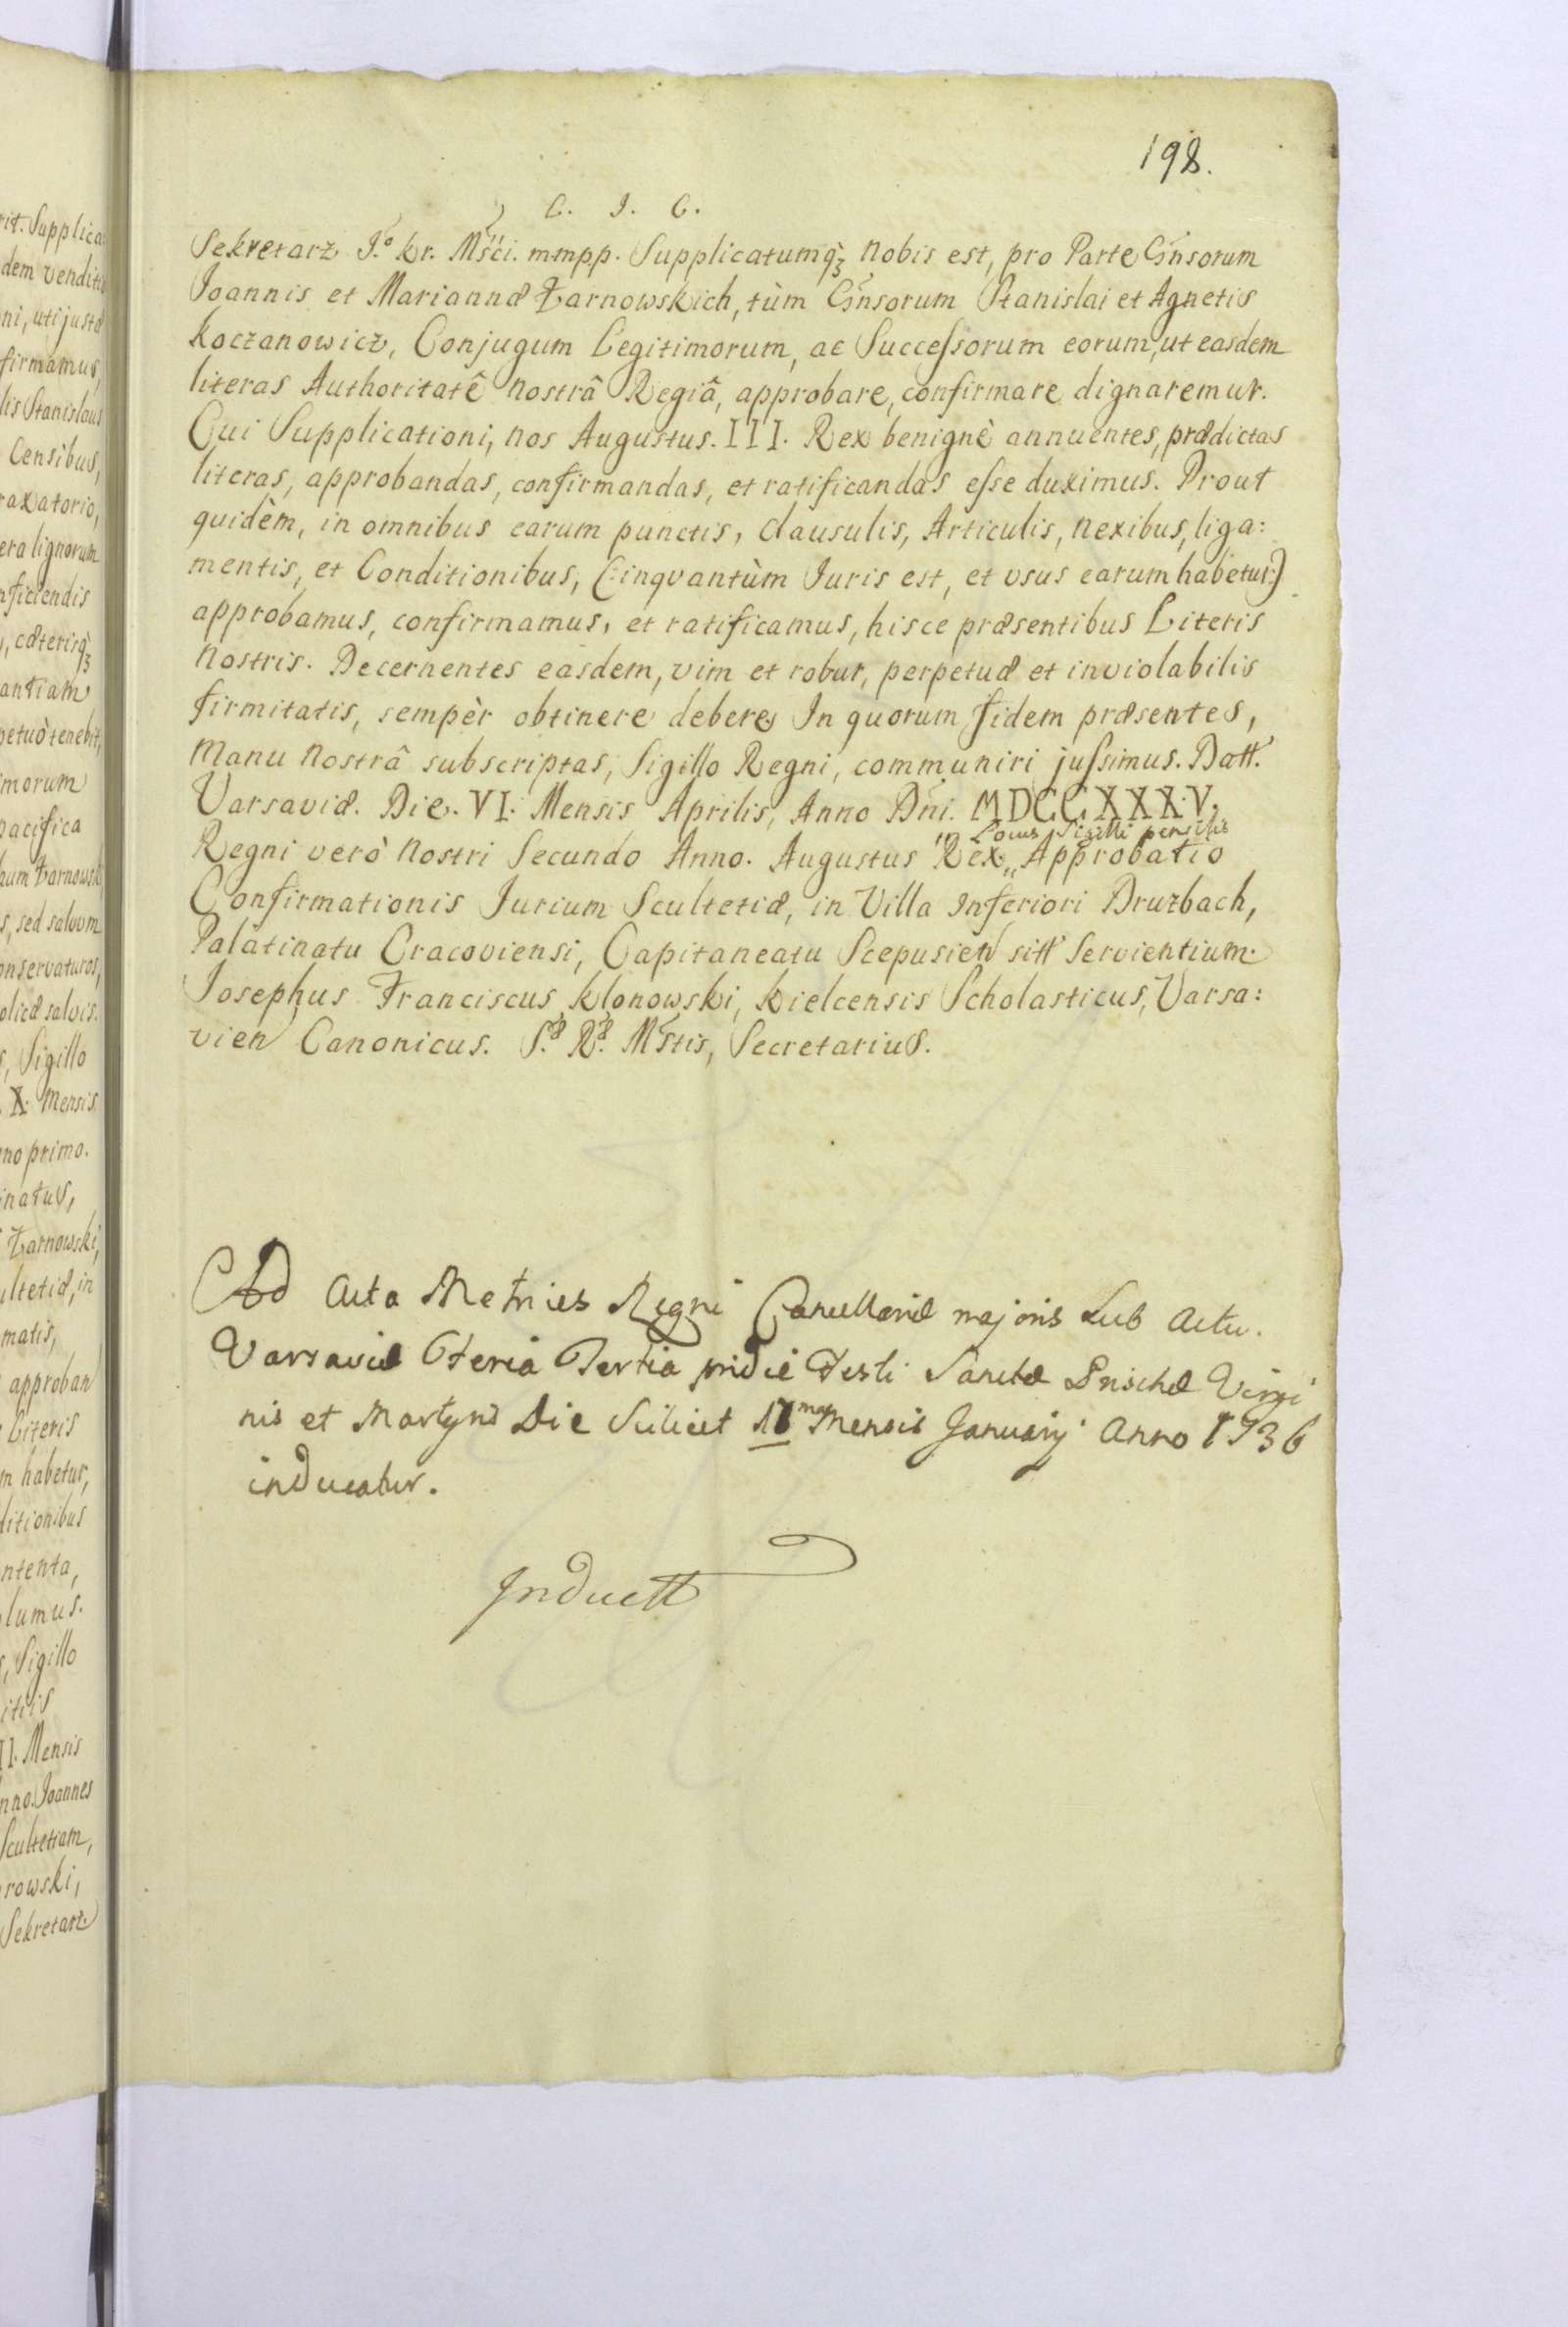 198.
C. I. C.
Sekretarz J.º kr. Mści. mmpp. Supplicatumq̀ꝫ nobis est, pro Parte Gn̄sorum
Joannis et Mariannæ Żarnowskich, tùm Gn̄sorum Stanislai et Agnetis
Koczanowicz, Conjugum Legitimorum, ac Succeſsorum eorum, ut easdem
literas Authoritatê nostrâ Regiâ, approbare, confirmare dignaremur.
Cui Supplicationi, nos Augustus. III. Rex benignè annuentes, prædictas
literas, approbandas, confirmandas, et ratificandas eſse duximus. Prout
quidèm, in omnibus earum punctis, Clausulis, Articulis, nexibus, liga:
mentis, et Conditionibus, (:inqvantùm Juris est, et usus earum habetur:)
approbamus, confirmamus, et ratificamus, hisce præsentibus Literis
nostris. Decernentes easdem, vim et robur, perpetuæ et inviolabilis
firmitatis, sempèr obtinere debere. In quorum fidem præsentes,
manu nostrâ subscriptas, Sigillo Regni, communiri juſsimus. Datt.
Varsaviæ. Die. VI. Mensis Aprilis, Anno Dn̄i. MDCCXXXV.
Locus Sigilli pensilis
Regni verò nostri Secundo Anno. Augustus Rex,, Approbatio
Confirmationis Jurium Scultetiæ, in Villa Inferiori Druzbach,
Palatinatu Cracoviensi, Capitaneatu Scepusien sitt Servientium.
Josephus Franciscus Klonowski, Kielcensis Scholasticus, Varsa:
vien Canonicus. S.æ R.æ Mstis, Secretarius.
Ad Acta Metrices Regni Cancellariæ majoris sub Actu.
Varsaviæ Feria Tertia pridie Festi Sanctæ Priscæ Virgi
nis et Martyris Die Scilicet 17ma Mensis Januarij Anno 1736
inducatur.
Inductt